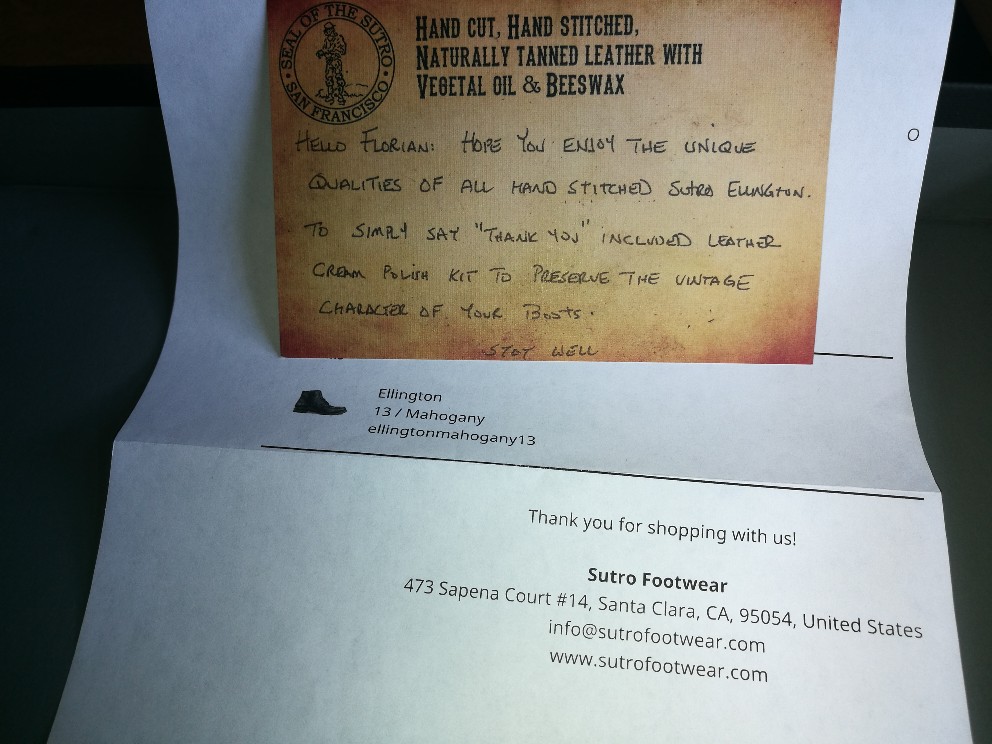 SEAL OF THE SUTRO
SAN FRANCISCO
HAND CUT, HAND STITCHED,
NATURALLY TANNED LEATHER WITH
VEGETAL OIL & BEESWAX
HELLO FLORIAN: HOPE YOU ENJOY THE UNIQUE
QUALITIES OF ALL HAND STITCHED SUTRO ELLINGTON.
TO SIMPLY SAY "THANK YOU" INCLUDED LEATHER
CREAM POLISH KIT TO PRESERVE THE VINTAGE
CHARACTER OF YOUR BOOTS.
STAY WELL
Ellington
13 / Mahogany
ellingtonmahogany13
Thank you for shopping with us!
Sutro Footwear
473 Sapena Court #14, Santa Clara, CA, 95054, United States
info@sutrofootwear.com
www.sutrofootwear.com